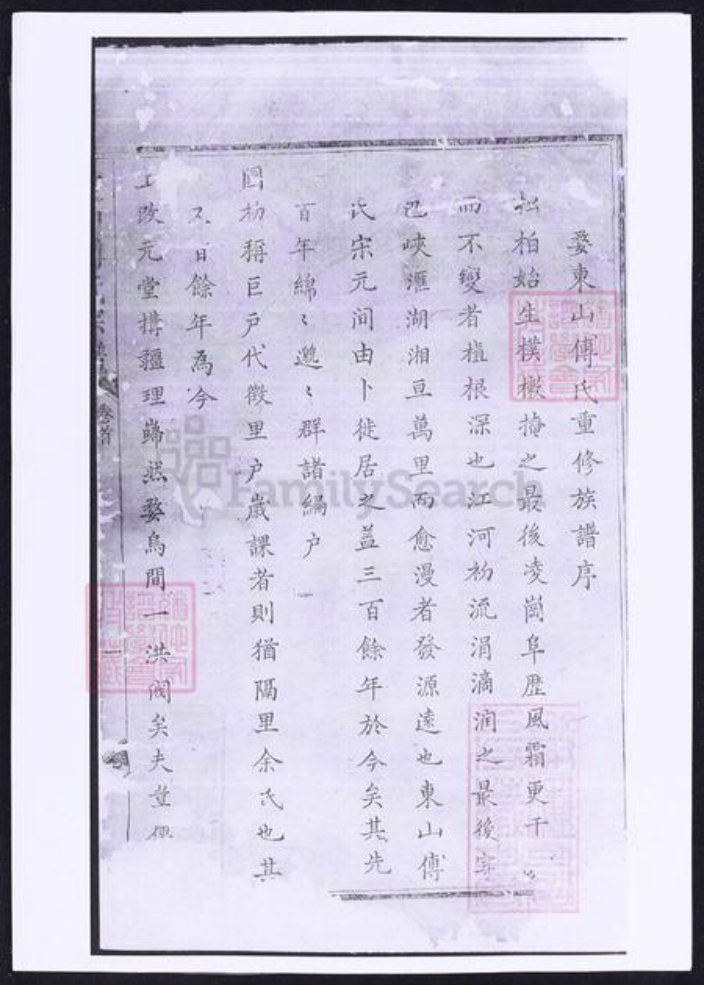 婺東山傅氏重修族譜序
松柏始生樸樕掩之最後凌崗阜歷風霜更千
而不變者植根深也江河初流涓滴潤之最後
匯湖湘亘萬里而愈漫者發源遠也東山傅
氏宋元间由卜徙居之盖三百餘年於今矣其先
百年綿〻邈〻群諸編户
國初稱巨戶代徵里户歲課者則猶隔里余氏也其
又百餘年為今
上改元堂搆疆理巋然婺烏間一洪閥矣夫
卷首
一
FamilySearch